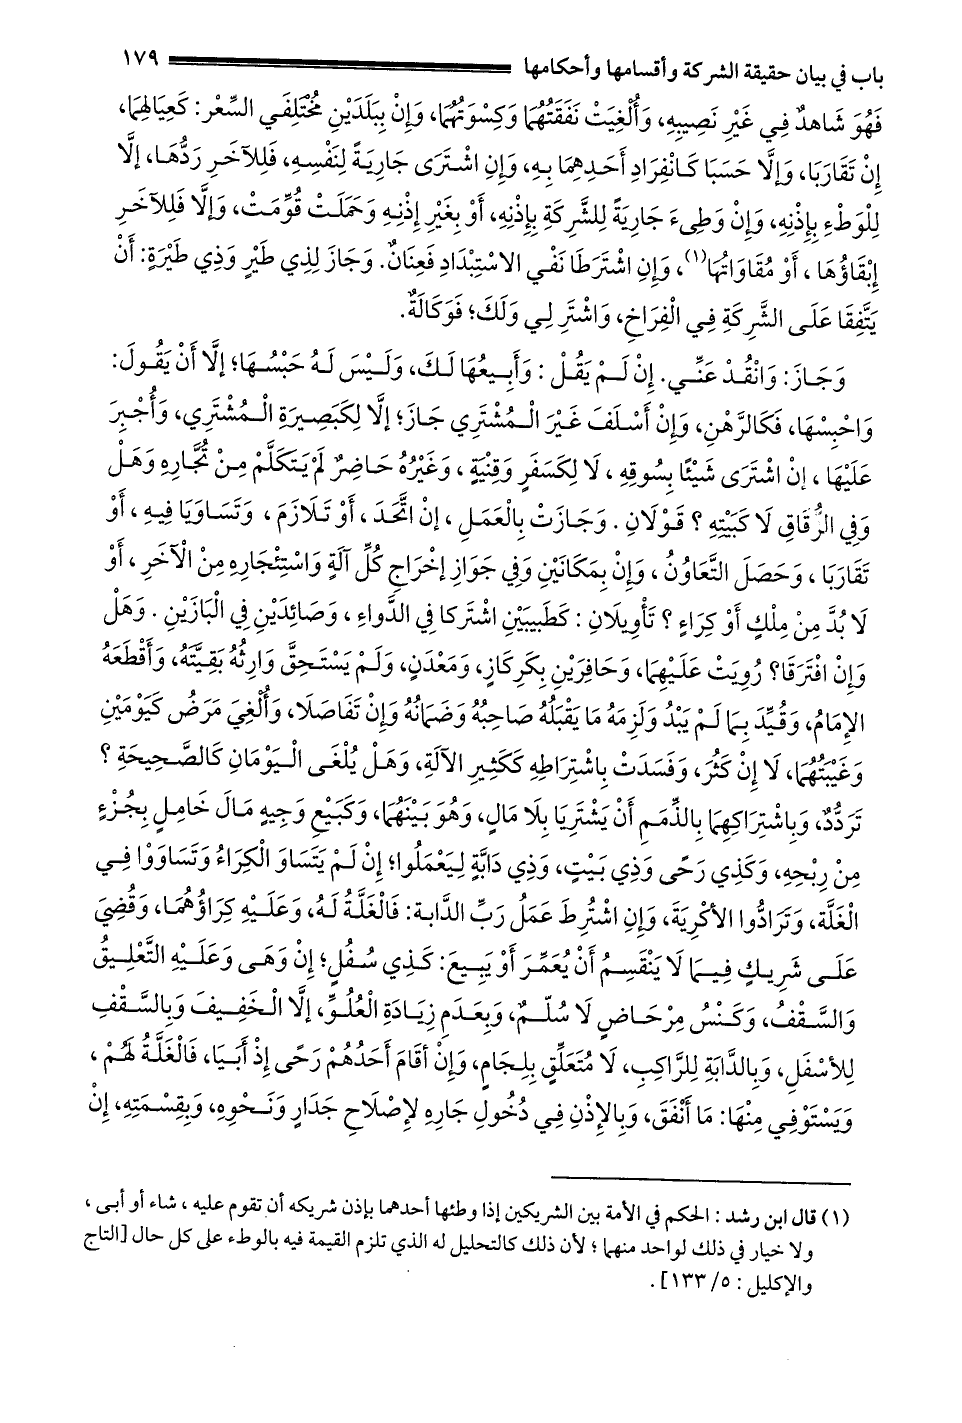 باب في بيان حقيقة الشركة وأقسامها وأحكامها ١٧٩
فَهُوَ شَاهدٌ فِي غَيْرِ نَصِيبِهِ، وَأُلْغِيَتْ نَفَقَتُهُمَا وَكِسْوَتُهُمَا، وَإِنْ بِبَلَدَيْنِ مُخْتَلِفَي السِّعْرِ: كَعِيَالِهِمَا،
إِنْ تَقَارَبَا، وَإِلَّا حَسَبَا كَانْفِرَادِ أَحَدِهِمَا بِهِ، وَإِنِ اشْتَرَى جَارِيَةً لِنَفْسِهِ، فَلِلآخَرِ رَدُّهَا، إِلَّا
لِلْوَطْءِ بِإِذْنِهِ، وَإِنْ وَطِىءَ جَارِيَةً لِلشَّرِكَةِ بِإِذْنِهِ، أَوْ بِغَيْرِ إِذْنِهِ وَحَمَلَتْ قُوِّمَتْ، وَإِلَّا فَلِلآخَرِ
إِبْقَاؤُهَا ، أَوْ مُقَاوَاتُهَا(١)، وَإِنِ اشْتَرَطَا نَفْيَ الاسْتِبْدَادِ فَعِنَانٌ. وَجَازَ لِذِي طَيْرٍ وَذِي طَيْرَةٍ: أَنْ
يَتَّفِقَا عَلَى الشَّرِكَةِ فِي الْفِرَاخِ، وَاشْتَرِ لِي وَلَكَ؛ فَوَكَالَةٌ.
وَجَازَ: وَانْقُدْ عَنِّي. إِنْ لَمْ يَقُلْ : وَأَبِيعُهَا لَكَ، وَلَيْسَ لَهُ حَبْسُهَا؛ إِلَّا أَنْ يَقُولَ:
وَاحْبِسْهَا، فَكَالرَّهْنِ، وَإِنْ أَسْلَفَ غَيْرَ الْمُشْتَرِي جَازَ؛ إِلَّا لِكَبَصِيرَةِ الْمُشْتَرِي، وَأُجْبِرَ
عَلَيْهَا ، إِنْ اشْتَرَى شَيْئًا بِسُوقِهِ ، لَا لِكَسَفَرٍ وَقِنْيَةٍ ، وَغَيْرُهُ حَاضِرٌ لَمْ يَتَكَلَّمْ مِنْ تُجَّارِهِ وَهَلْ
وَفِي الزُّقَاقِ لَا كَبَيْتِهِ ؟ قَوْلَانِ . وَجَازَتْ بِالْعَمَلِ ، إِنِ اتَّحَدَ ، أَوْ تَلَازَمَ ، وَتَسَاوَيَا فِيهِ ، أَوْ
تَقَارَبَا ، وَحَصَلَ التَّعَاوُنُ ، وَإِنْ بِمَكَانَيْنِ وَفِي جَوَازِ إِخْرَاجِ كُلٍّ آلَةٍ وَاسْتِئْجَارِهِ مِنْ الْآخَرِ ، أَوْ
لَا بُدَّ مِنْ مِلْكٍ أَوْ كِرَاءٍ ؟ تَأْوِيلَانِ : كَطَبِيبَيْنِ اشْتَرَكا فِي الدَّواءِ ، وَصَائِدَيْنِ فِي الْبَازَيْنِ . وَهَلْ
وَإِنْ افْتَرَقَا؟ رُوِيَتْ عَلَيْهِمَا، وَحَافِرَيْنِ بِكَرِكَازٍ، وَمَعْدَنٍ، وَلَمْ يَسْتَحِقَّ وَارِثُهُ بَقِيَّتَهُ، وَأَقْطَعَهُ
الإِمَامُ، وَقُيِّدَ بِمَا لَمْ يَبْدُ وَلَزِمَهُ مَا يَقْبَلُهُ صَاحِبُهُ وَضَمَانُهُ وَإِنْ تَفَاصَلَا، وَأُلْغِيَ مَرَضُ كَيَوْمَيْنِ
وَغَيْبَتُهُمَا، لَا إِنْ كَثُرَ، وَفَسَدَتْ بِاشْتِرَاطِهِ كَكَثِيرِ الآلَةِ، وَهَلْ يُلْغَى الْيَوْمَانِ كَالصَّحِيحَةِ ؟
تَرَدُّدٌ، وَبِاشْتِرَاكِهِمَا بِالذِّمَمِ أَنْ يَشْتَرِيَا بِلَا مَالٍ، وَهُوَ بَيْنَهُمَا، وَكَبَيْعِ وَجِيهٍ مَالَ خَامِلٍ بِجُزْءٍ
مِنْ رِبْحِهِ، وَكَذِي رَحًى وَذِي بَيْتٍ، وَذِي دَابَّةٍ لِيَعْمَلُوا؛ إِنْ لَمْ يَتَسَاوَ الْكِرَاءُ وَتَسَاوَوْا فِي
الْغَلَّة، وَتَرَادُّوا الأكْرِيَةَ، وَإِنِ اشْتُرِطَ عَمَلُ رَبِّ الدَّابة: فَالْغَلَّةُ لَهُ، وَعَلَيْهِ كِرَاؤُهُمَا، وَقُضِيَ
عَلَى شَرِيكٍ فِيمَا لَا يَنْقَسِمُ أَنْ يُعَمِّرَ أَوْ يَبِيعَ: كَذِي سُفْلٍ؛ إِنْ وَهَى وَعَلَيْهِ التَّعْلِيقُ
وَالسَّقْفُ، وَكَنْسُ مِرْحَاضٍ لَا سُلَّمٌ، وَبِعَدَمِ زِيَادَةِ الْعُلُوِّ، إِلَّا الْخَفِيفَ وَبِالسَّقْفِ
لِلأسْفَلِ، وَبِالدَّابَةِ لِلرَّاكِبِ، لَا مُتَعَلِّقٍ بِلِجَامٍ، وَإِنْ أَقَامَ أَحَدُهُمْ رَحًى إِذْ أَبَيَا، فَالْغَلَّةُ لَهُمْ ،
وَيَسْتَوْفِي مِنْهَا: مَا أَنْفَقَ، وَبِالإِذْنِ فِي دُخُولِ جَارِهِ لإِصْلَاحِ جَدَارٍ وَنَحْوِهِ، وَبِقِسْمَتِهِ، إِنْ
(١) قال ابن رشد : الحكم في الأمة بين الشريكين إذا وطئها أحدهما بإذن شريكه أن تقوم عليه ، شاء أو أبى ،
ولا خيار في ذلك لواحد منهما ؛ لأن ذلك كالتحليل له الذي تلزم القيمة فيه بالوطء على كل حال [التاج
والإكليل : ٥/ ١٣٣] .